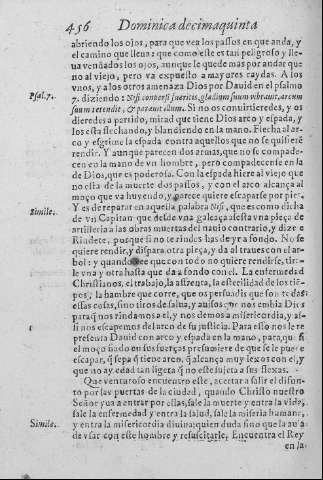 456 Dominica decimaquinta
abriendo los ojos, para que vea los passos en que anda, y
el camino que lleua: que como este es tan peligroso y lle-
ua vendados los ojos, aunque le quede mas por andar que
no al viejo, pero va expuesto a mayores caydas. A los
vnos, y a los otros amenaza Dios por Dauid en el psalmo
Psal. 7. 7. diziendo: Nisi conuersi fueritis, gladium suum vibrauit, arcum
suum tetendit, & parauit illum. Si no os conuirtieredes, y os
dieredes a partido, mirad que tiene Dios arco y espada, y
los esta flechando, y blandiendo en la mano. Flecha el ar-
co y esgrime la espada contra aquellos que no se quisierē
rendir. Y aunque parecen dos armas, que no se compade-
cen en la mano de vn hombre, pero compadecense en la
de Dios, que es poderosa. Con la espada hiere al viejo que
no esta de la muerte dos passos, y con el arco alcança al
moço que va huyendo, y parece quiere escaparse por pies.
Simile. Y es de reparar en aquella palabra Nisi, que es como dicha
de vn Capitan que desde vna galeaça assesta vna pieça de
artilleria a las obras muertas del nauio contrario, y dize
Rindete, porque si no te rindes has de yr a fondo. No se
quiere rendir, y dispara otra pieça, y da al traues con el ar-
bol: y quando vee que con todo no quiere rendirse, tira-
le vna y otra hasta que da a fondo con el. La enfermedad
Christianos, el trabajo, la afrenta, la esterilidad de los tiē-
pos, la hambre que corre, que os persuadis que son todas
estas cosas, sino tiros de salua, y auisos que nos embia Dios
paraq̃ nos rindamos a el, y nos demos a misericordia, y as-
si nos escapemos del arco de su justicia. Para esto nos le re
presenta Dauid con arco y espada en la mano, paraq̃ si
el moço fiado en sus fuerças presumiere de que se le puede
escapar, q̃ sepa q̃ tiene arco, q̃ alcança muy lexos con el, y
que no ay edad tan ligera q̃ no este sujeta a sus flexas.
Que venturoso encuentro este, acertar a salir el difun-
to por las puertas de la ciudad, quando Christo nuestro
Señor yua a entrar por ellas, sale la muerte y entra la vida,
sale la enfermedad y entra la salud, sale la miseria humana,
Simile. y entra la misericordia diuina: quien duda sino que la au'a
de vsar con este hombre y resuscitarle. Encuentra el Rey
en la